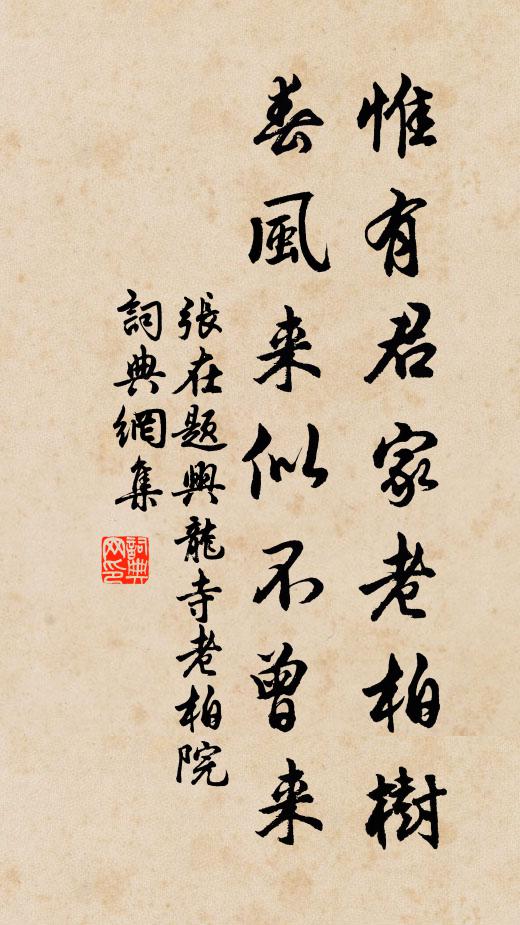 惟有君家老柏樹
春風来似不曾来
張在題興龍寺老柏院
詞典網集
詞典网印